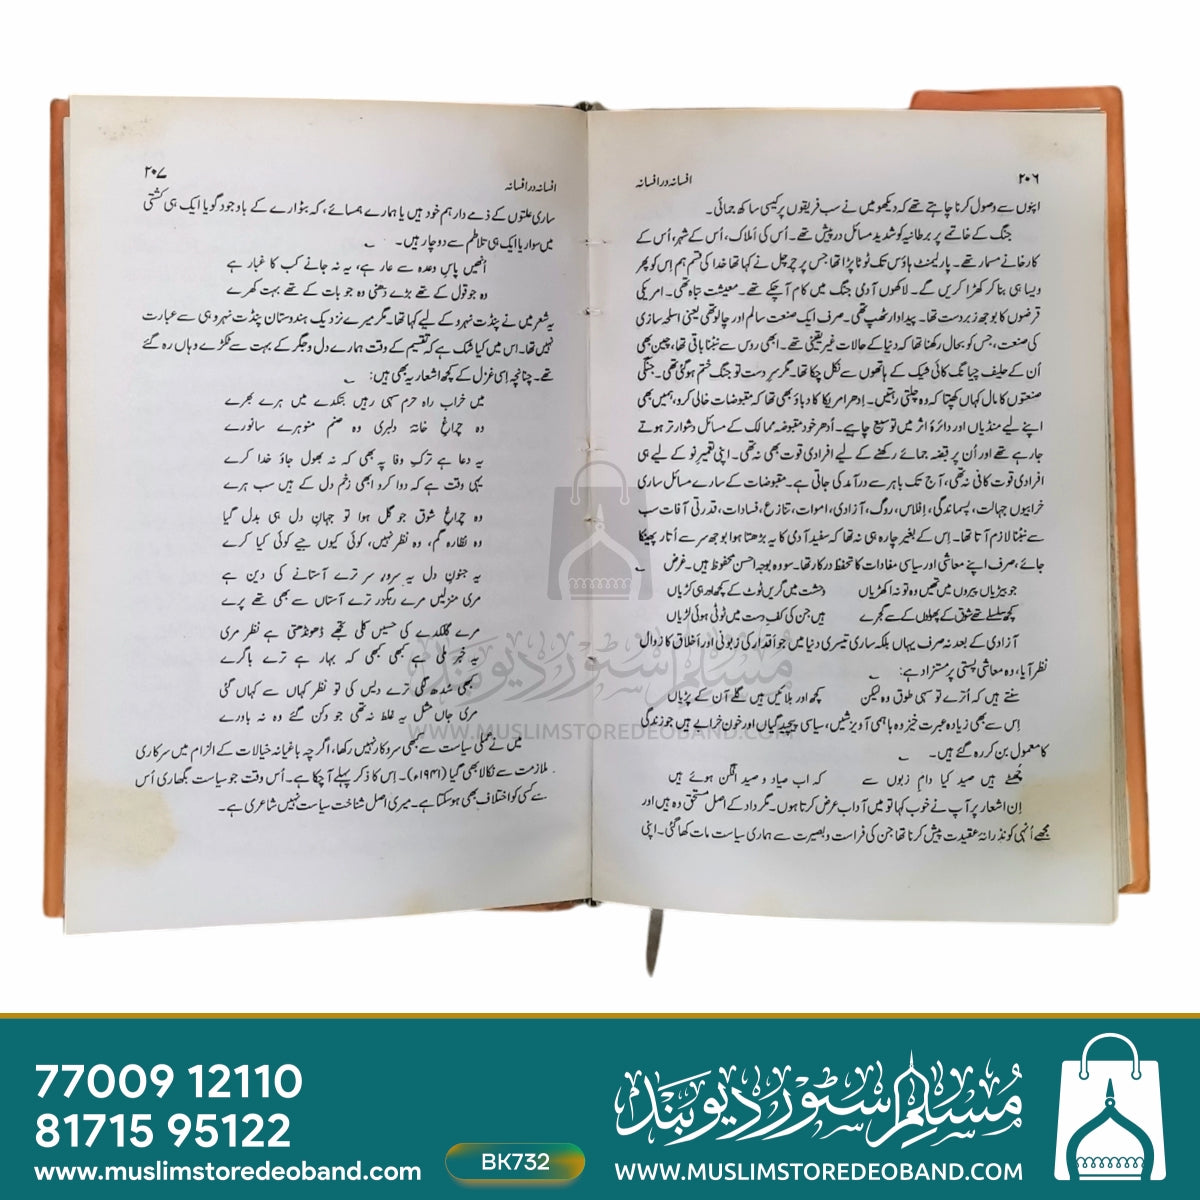 ۲۰۶
افسانہ در افسانہ
اپنوں سے وصول کرنا چاہتے تھے کہ دیکھو میں نے سب فریقوں پر کیسی ساکھ جمائی۔
جنگ کے خاتمے پر برطانیہ کو شدید مسائل درپیش تھے۔ اُس کی اَملاک، اُس کے شہر، اُس کے
کارخانے مسمار تھے۔ پارلیمنٹ ہاؤس تک ٹوٹا پڑا تھا جس پر چرچل نے کہا تھا خدا کی قسم ہم اِس کو پھر
ویسا ہی بنا کر کھڑا کریں گے۔ لاکھوں آدمی جنگ میں کام آ چکے تھے۔ معیشت تباہ تھی۔ امریکی
قرضوں کا بوجھ زبردست تھا۔ پیداوار ٹھپ تھی۔ صرف ایک صنعت سالم اور چالو تھی یعنی اسلحہ سازی
کی صنعت، جس کو بحال رکھنا تھا کہ دنیا کے حالات غیر یقینی تھے۔ ابھی روس سے نبٹنا باقی تھا، چین بھی
اُن کے حلیف چیانگ کائی شیک کے ہاتھوں سے نکل چکا تھا۔ مگر سرِدست تو جنگ ختم ہو گئی تھی۔ جنگی
صنعتوں کا مال کہاں کھپتا کہ وہ چلتی رہتیں۔ اِدھر امریکا کا دباؤ بھی تھا کہ مقبوضات خالی کرو، ہمیں بھی
اپنے لیے منڈیاں اور دائرۂ اثر میں توسیع چاہیے۔ اُدھر خود مقبوضہ ممالک کے مسائل دشوار تر ہوتے
جا رہے تھے اور اُن پر قبضہ جمائے رکھنے کے لیے افرادی قوت بھی نہ تھی۔ اپنی تعمیرِ نو کے لیے ہی
افرادی قوت کافی نہ تھی، آج تک باہر سے درآمد کی جاتی ہے۔ مقبوضات کے سارے مسائل ساری
خرابیوں جہالت، پسماندگی، اِفلاس، روگ، آزادی، اموات، تنازع، فسادات، قدرتی آفات سب
سے نبٹنا لازم آتا تھا۔ اِس کے بغیر چارہ ہی نہ تھا کہ سفید آدمی کا یہ بڑھتا ہوا بوجھ سر سے اُتار پھینکا
جائے، صرف اپنے معاشی اور سیاسی مفادات کا تحفظ درکار تھا۔ سو وہ بوجہ احسن محفوظ ہیں۔ غرض
جو بیڑیاں پیروں میں تھیں وہ تو نہ اکھڑیاں دہشت میں گریں ٹوٹ کے کچھ اور ہی کڑیاں
کچھ سلسلے تھے شوق کے پھولوں کے سے گجرے ہیں جن کی کفِ دست میں ٹوٹی ہوئی لڑیاں
آزادی کے بعد نہ صرف یہاں بلکہ ساری تیسری دنیا میں جو اَقدار کی زبونی اور اَخلاق کا زوال
نظر آیا، وہ معاشی پستی پر مستزاد ہے:
سنتے ہیں کہ اُترے تو سہی طوق وہ لیکن کچھ اور بلائیں ہیں گلے آن کے پڑیاں
اِس سے بھی زیادہ عبرت خیز وہ باہمی آویزشیں، سیاسی پیچیدگیاں اور خون خرابے ہیں جو زندگی
کا معمول بن کر رہ گئے ہیں۔
چُھٹے ہیں صید کیا دامِ زبوں سے کہ اب صیاد و صید افگن ہوئے ہیں
اِن اشعار پر آپ نے خوب کہا تو میں آداب عرض کرتا ہوں۔ مگر داد کے اصل مستحق وہ ہیں اور
مجھے اُنہی کو نذرانۂ عقیدت پیش کرنا تھا جن کی فراست و بصیرت سے ہماری سیاست مات کھا گئی۔ اپنی
۲۰۷
افسانہ در افسانہ
ساری علتوں کے ذمے دار ہم خود ہیں یا ہمارے ہمسائے، کہ بٹوارے کے باوجود گویا ایک ہی کشتی
میں سوار یا ایک ہی تلاطم سے دوچار ہیں۔
اُنھیں پاسِ وعدہ سے عار ہے، یہ نہ جانے کب کا غبار ہے
وہ جو قول کے تھے بڑے دَھنی وہ جو بات کے تھے بہت کھرے
یہ شعر میں نے پنڈت نہرو کے لیے کہا تھا۔ مگر میرے نزدیک ہندوستان پنڈت نہرو ہی سے عبارت
نہیں تھا۔ اس میں کیا شک ہے کہ تقسیم کے وقت ہمارے دل و جگر کے بہت سے ٹکڑے وہاں رہ گئے
تھے۔ چنانچہ اِسی غزل کے کچھ اشعار یہ بھی ہیں:
میں خراب راہِ حرم سہی رہیں بتکدے میں ہرے بھرے
وہ چراغِ خانۂ دلبری وہ صنم منوہرے سانورے
یہ دعا ہے ترکِ وفا پہ بھی کہ نہ بھول جاؤ خدا کرے
یہی وقت ہے کہ دوا کرو ابھی زخم دل کے ہیں سب ہرے
وہ چراغِ شوق جو گل ہوا تو جہانِ دل ہی بدل گیا
وہ نظارہ گم، وہ نظر نہیں، کوئی کیوں جیے کوئی کیا کرے
یہ جنونِ دل یہ سرورِ سر ترے آستانے کی دین ہے
مری منزلیں مرے رہگزر ترے آستاں سے بھی تھے پرے
مرے گلکدے کی حسیں کلی تجھے ڈھونڈھتی ہے نظر مری
یہ خبر ملی ہے کبھی کبھی کہ بہار ہے ترے باگرے
بھی سُدھ گئی ترے دیس کی تو نظر کہاں سے کہاں گئی
مری جاں مثل یہ غلط نہ تھی جو دکن گئے وہ نہ باورے
میں نے عملی سیاست سے کبھی سروکار نہیں رکھا، اگرچہ باغیانہ خیالات کے الزام میں سرکاری
ملازمت سے نکالا بھی گیا (۱۹۴۱ء)۔ اِس کا ذکر پہلے آ چکا ہے۔ اُس وقت جو سیاست بگھاری اُس
سے کسی کو اختلاف بھی ہو سکتا ہے۔ میری اصل شناخت سیاست نہیں شاعری ہے۔
مسلم سٹور دیوبند
WWW.MUSLIMSTOREDEOBAND.COM
77009 12110
81715 95122
www.muslimstoredeoband.com
BK732
مسلم سٹور دیوبند
WWW.MUSLIMSTOREDEOBAND.COM